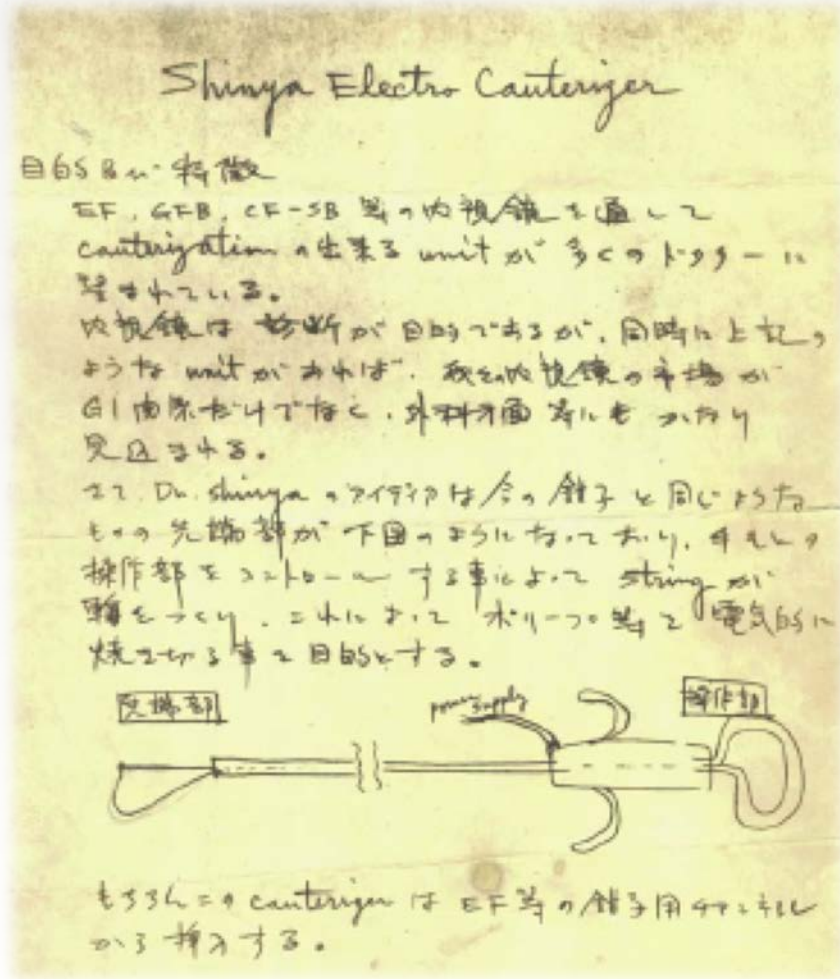 Shinya Electro Cauterizer
目的及び特徴
EF, GFB, CF-SB 等の内視鏡を通して
cauterization の出来る unit が多くのドクターに
望まれている。
内視鏡は診断が目的であるが、同時に上記の
ような unit があれば、我々の内視鏡の市場が
GI 関係だけでなく、外科方面等にもかなり
見込まれる。
さて、Dr. Shinya のアイディアは今の鉗子と同じような
ものの先端部が下図のようになっており、手元の
操作部をコントロールする事によって string が
輪をつくり、これによってポリープ等を電気的に
焼き切る事を目的とする。
先端部
power supply
操作部
もちろんこの cauterizer は EF 等の鉗子用チャンネル
から挿入する。